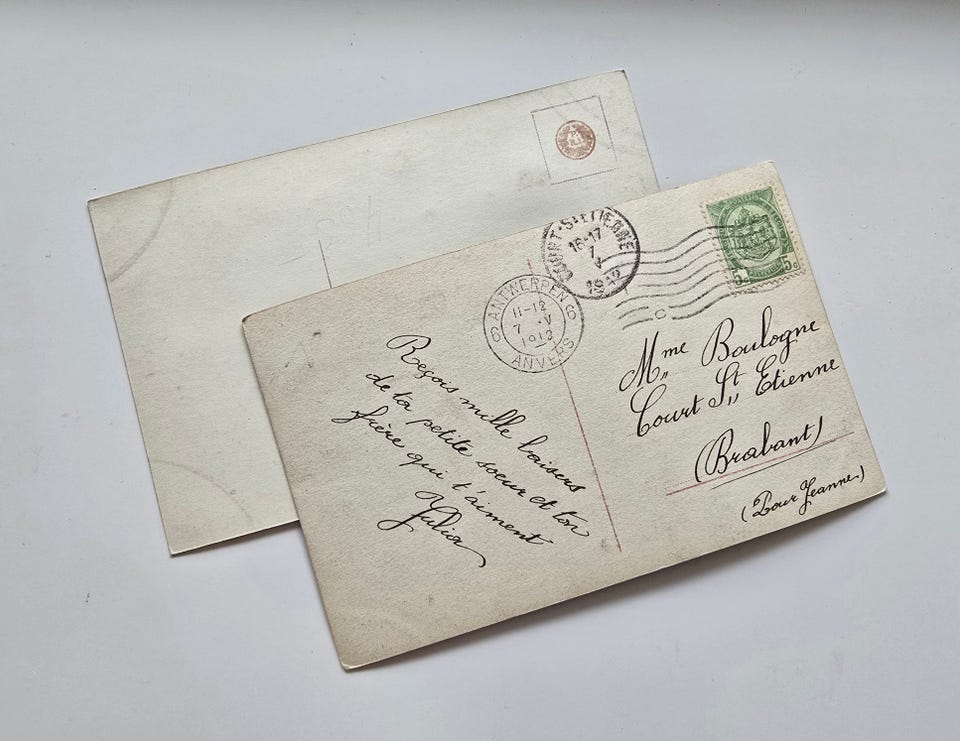 COURT-ST-ETIENNE
16-17
7
V
1912
ANTWERPEN
6 6
11-12
7 V
1912
ANVERS
C
5c 5c
Mme Boulogne
Court St Etienne
(Brabant)
(Pour Jeanne)
Reçois mille baisers
de ta petite soeur et ton
frère qui t'aiment
Julia